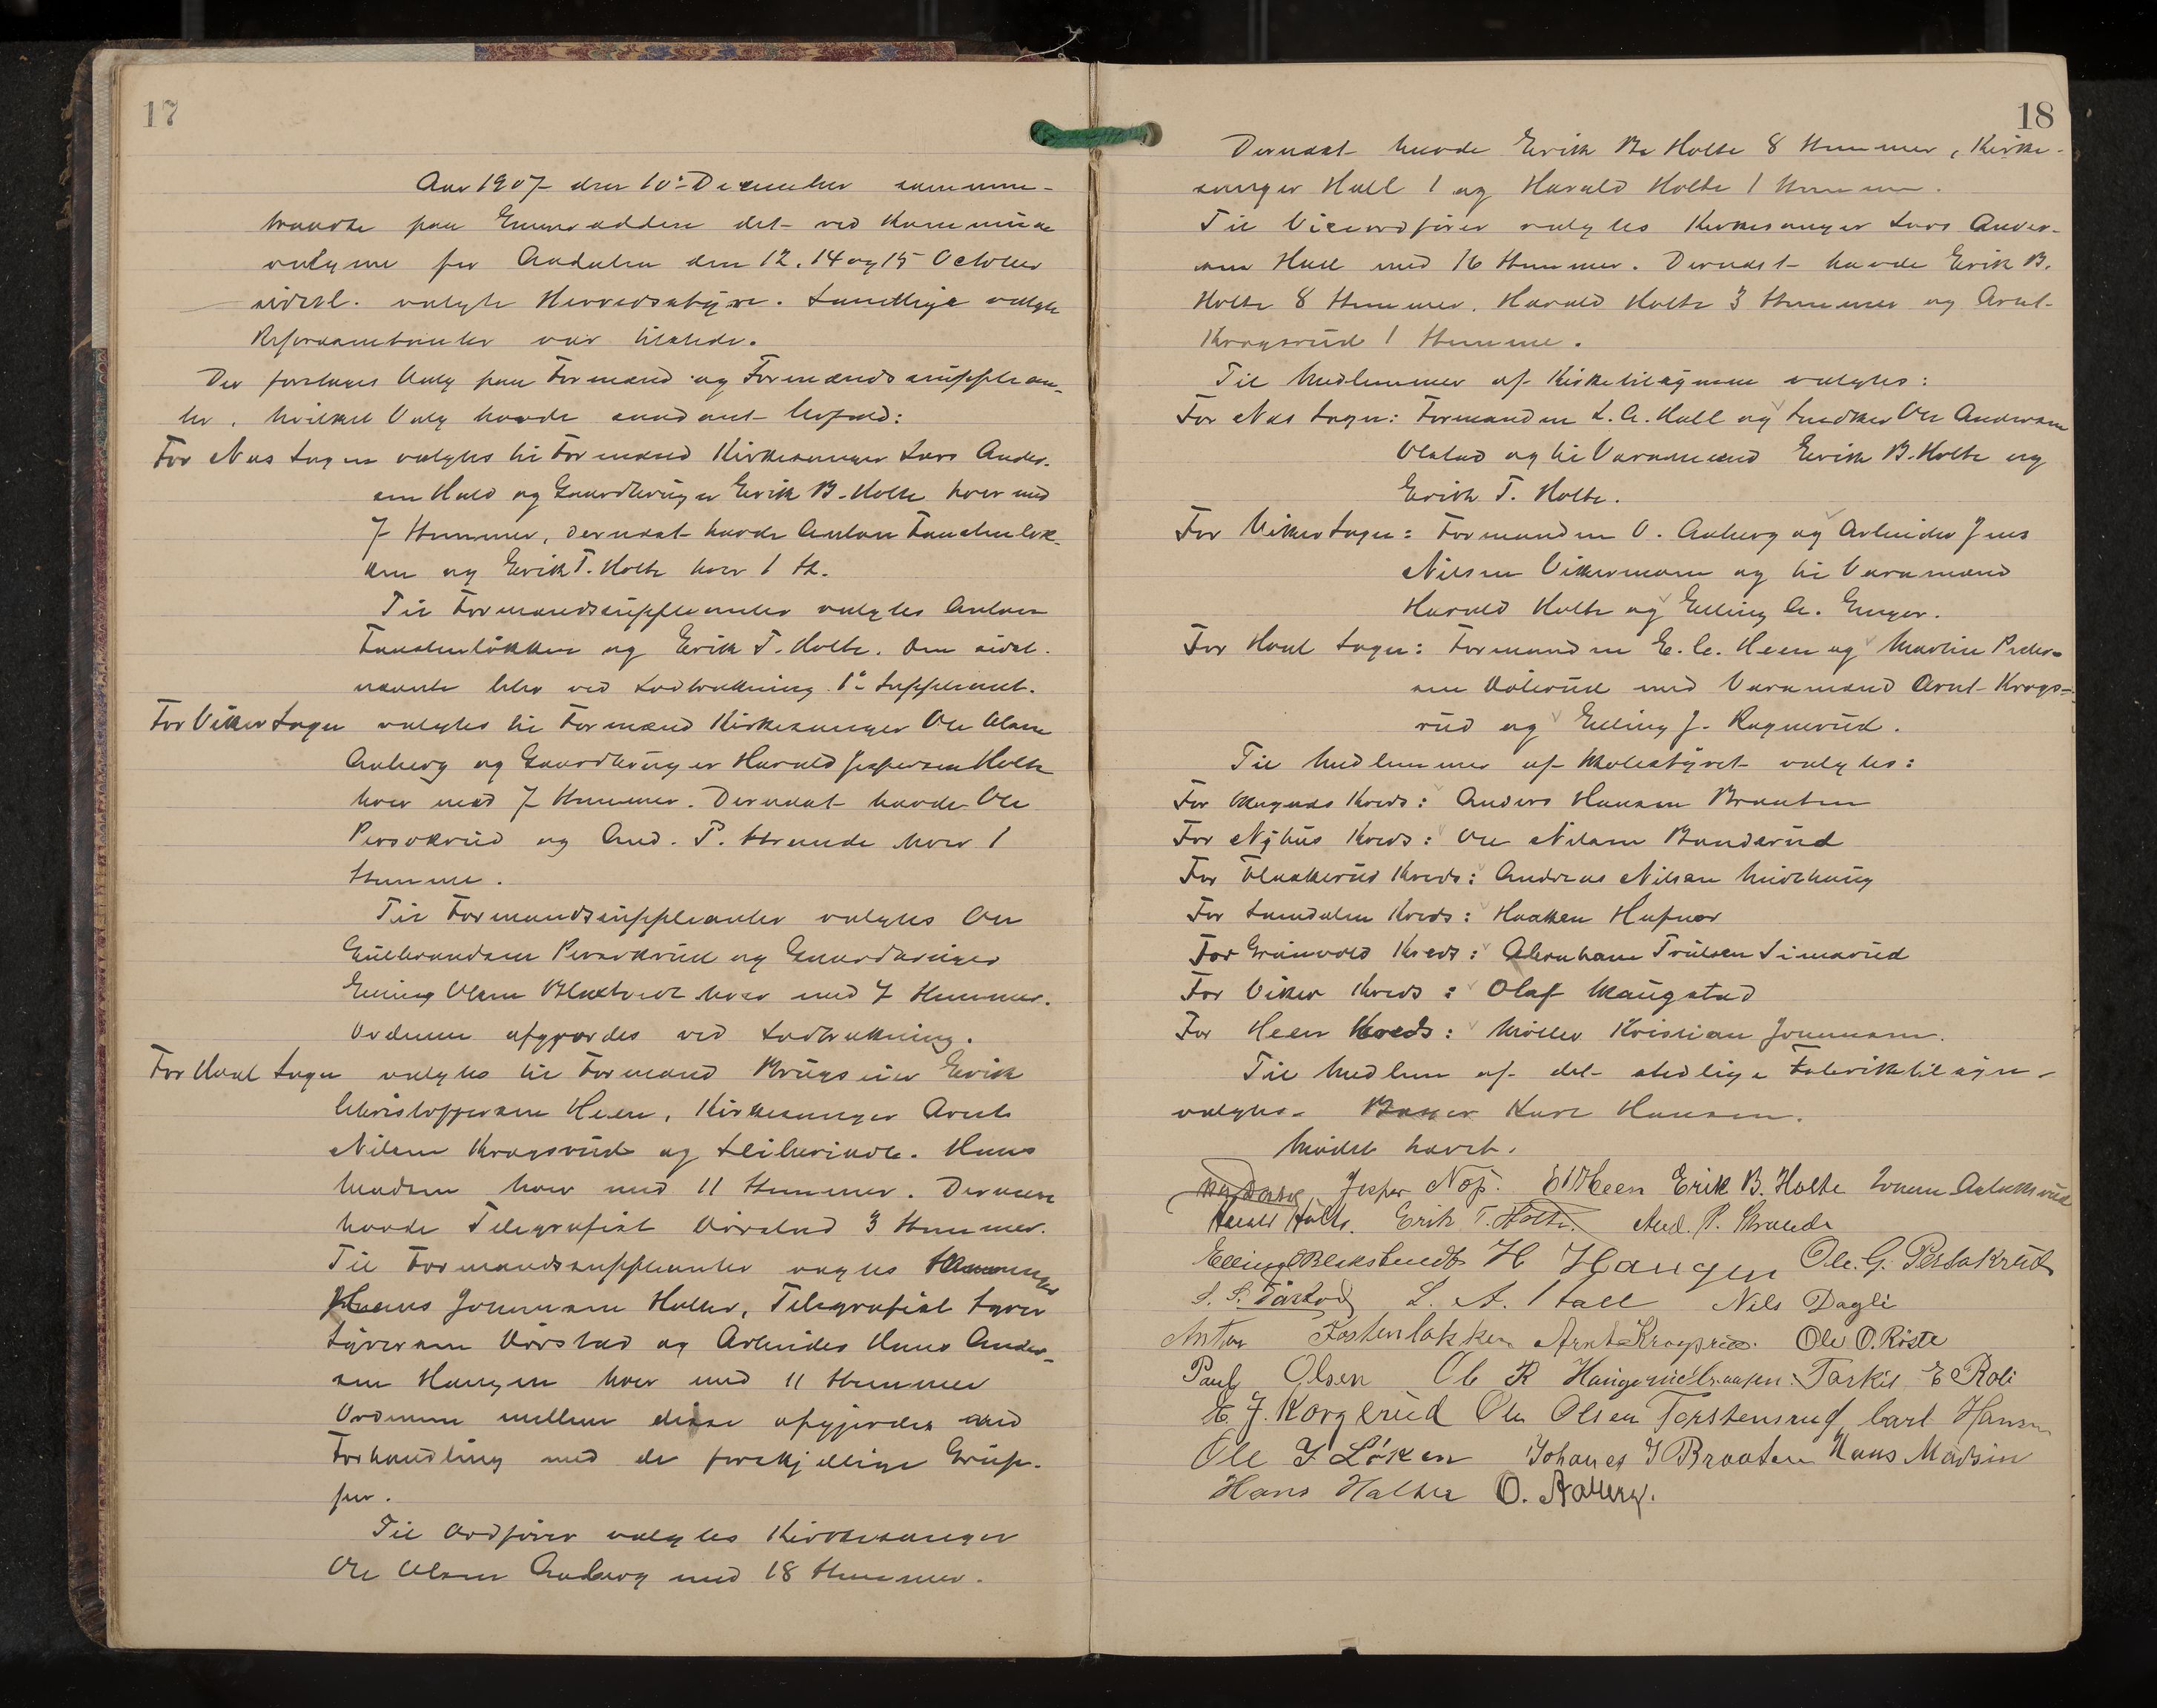 17
Aar 1907 den 10de December sammen-
traadte paa Enmoradden det ved kommune
valgene for Aadalen den 12, 14 og 15 October
sidstl. valgte Herredsstyre. Samtlige valgte
Repræsentanter var tilstede.
Der foretages Valg paa Formænd og Formandssupplean-
ter, hvilket Valg havde saadant Udfald:
For Næs Sogn valgtes til Formænd Kirkesanger Lars Ander-
sen Hall og Gaardbruger Erik B. Holte hver med
7 Stemmer, dernæst havde Anton Fauchenløk-
ken og Erik T. Holte hver 1 St.
Til Formandssuppleanter valgtes Anton
og Erik T. Holte. Den sidst-
nævnte blev ved Lodtrækning 1ste Suppleant.
For Viker Sogn valgtes til Formænd Kirkesanger Ole Olsen
Aaberg og Gaardbruger Harald Jespersen Holte
hver med 7 Stemmer. Dernæst havde Ole
Persokrud og And. P. Strande hver 1
Stemme.
Til Formandssuppleanter valgtes Ole
Gulbrandsen Persokrud og Gaardbruger
Elling Olsen Blakstvedt hver med 7 Stemmer.
Ordenen afgjordes ved Lodtrækning.
For Hval Sogn valgtes til Formænd Brugseier Erik
Christoffersen Heen, Kirkesanger Arnt
Nilsen Kragsrud og Sliberiarb. Hans
Madsen hver med 11 Stemmer. Dernæst
havde Telegrafist Vørstad 3 Stemmer.
Til Formandssuppleanter valgtes
Hans Johnnsen Halter, Telegrafist Syver
Syversen Vørstad og Arbeider Hans Ander-
sen Haugen hver med 11 Stemmer
Ordenen mellem disse afgjordes ved
Forhandling med de forskjellige Grup-
per.
Til Ordfører valgtes Kirkesanger
Ole Olsen Aaberg med 18 Stemmer.
18
Dernæst havde Erik B. Holte 8 Stemmer, Kirke-
sanger Hall 1 og Harald Holte 1 Stemme.
Til Viceordfører valgtes Kirkesanger Lars Ander-
sen Hall med 16 Stemmer. Dernæst havde Erik B.
Holte 8 Stemmer, Harald Holte 3 Stemmer og Arnt
Kragsrud 1 Stemme.
Til Medlemmer af Kirketilsynene valgtes:
For Næs Sogn: Formanden L. A. Hall og Snedker Ole Andersen
Olstad og til Varamænd Erik B. Holte og
Erik T. Holte.
For Viker Sogn: Formanden O. Aaberg og Arbeider Jens
Nilsen Vikermoen og til Varamænd
Harald Holte og Elling A. Enger.
For Hval Sogn: Formanden E. C. Heen og Martin Peder-
sen med Varamænd Arnt Krags-
rud og Elling J. Ragnerud.
Til Medlemmer af Skolestyret valgtes:
For Skagnæs Kreds: Anders Hansen Braaten
For Nyhus Kreds: Ole Nilsen Bonderud
For Flaskerud Kreds: Andreas Nilsen Midthaug
For Somdalen Kreds: Haaken Hafnor
For Grønvold Kreds: Abraham Trulsen Simarud
For Viker Kreds: Olaf Skaugstad
For Heen Kreds: Møller Kristian Johnnsen.
Til Medlem af det stedlige Fabriktilsyn
valgtes Karl Hansen.
Mødet hævet.
Jesper Næs. E C Heen Erik B. Holte
Harald Holte. Erik T. Holte. And. P. Strande
Elling Blakstvedt H Haugen Ole. G. Persakrud
L. A. Hall Nils Dagli
Anton Arnt Kragsrud. Ole O. Røste
Paul Olsen Ole R Torkil E Roli
Ole Olsen Torstensrud, Carl Hansen
Ole J Løken Johanes J Braaten Hans Madsen
Hans Halter O. Aaberg.